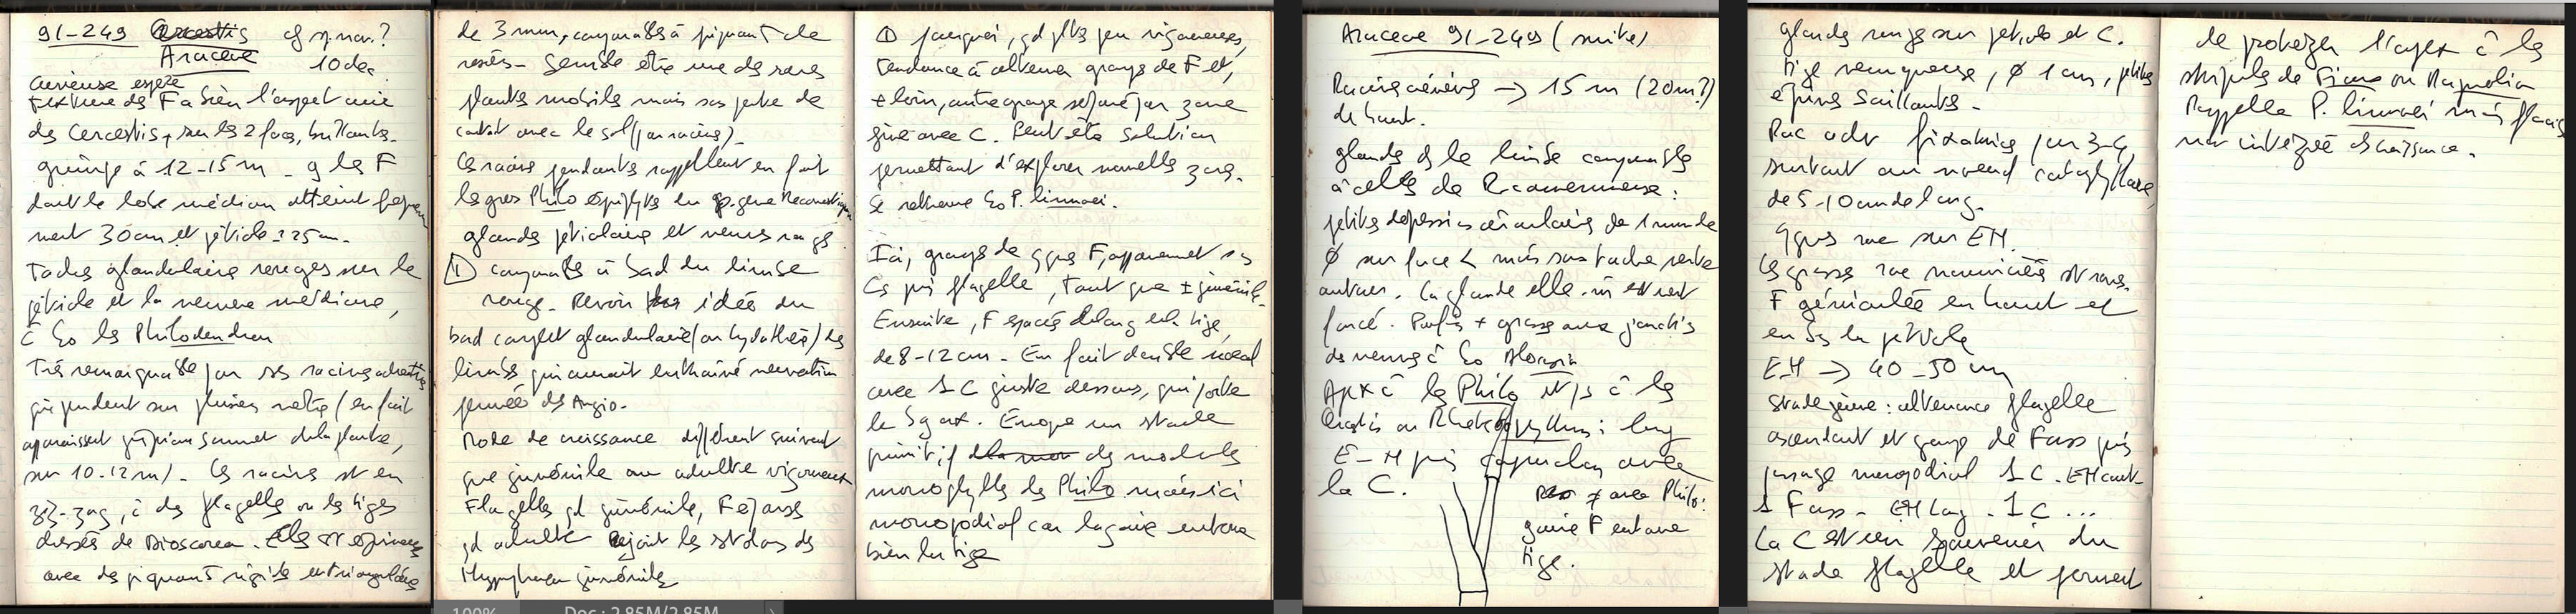 91-249 Cercestis cf sp. nov. ?
Araceae 10 dec
curieuse espèce
texture des F a bien l'aspect cuir
des Cercestis, sur les 2 faces, brillantes.
grimpe à 12-15 m _ g les F
dont le lobe médian atteint fréquem
ment 30 cm et pétiole ± 25 cm.
Taches glandulaires rouges sur le
pétiole et la nervure médiane,
c̄ les Philodendron
Très remarquable par ses racines adventives
qui pendent sur plusieurs mètres (en fait
apparaissent jusqu'au sommet de la plante,
sur 10-12 m). Ces racines st en
zig-zag, c̄ des flagelles ou les tiges
dressées de Dioscorea. Elles st épineuses
avec des piquants rigides et triangulaires
de 3 mm, comparables à piquants de
rosiers - Semble être une des rares
plantes mobiles mais sas perte de
contact avec le sol (par racines).
Ces racines pendantes rappellent en fait
les gros Philo épiphytes du s. gene Meconostigma
glandes pétiolaires et nervures rouges
① comparables à bord du limbe
rouge. Revoir idées du
bord complet glandulaire (ou hydathes) des
limbes qui aurait entrainé nervation
fermée des Angio.
Mode de croissance différent suivant
que juvénile ou adulte vigoureux
Flagelles qd juvénile, F éparses
qd adulte rejoint les stolons des
juvéniles
① pourquoi, qd ptes peu vigoureuses,
tendance à alterner groupe de F et,
+ loin, autre groupe séparé par zone
gine avec C. Peut être solution
permettant d'explorer nouvelles zones.
Se retrouve P. linnaei.
Ici, groupe de qques F, apparemment ss
Cs puis flagelle, tant que ± juvénile.
Ensuite, F espacés de long de la tige,
de 8-12 cm - En fait double noeud
avec 1 C juste dessous, qui porte
le Bg ax. Evoque un stade
primitif de la mon des modules
monophylles des Philo mais ici
monopodial car la gaine entoure
bien la tige
Araceae 91-249 (suite)
Racines aériennes → 15 m (20 m?)
de haut.
glandes de le limbe comparables
à celles de Ricaverneuse :
petites dépressions circulaires de 1 mm de
Ø sur face < mais sas tache verte
autour. La glande elle-m̄ est vert
foncé. Parfois + grosse aux jonctions
des nervures c̄ Alocasia
Apex c̄ les Philo et ps c̄ les
Cercestis ou Rhektophyllum : long
E-N puis capuchon avec
la C.
≠ avec Philo :
gaine F entoure
tige.
glandes rouges sur pétiole et C.
tige verruqueuse, Ø 1 cm, petites
épines saillantes -
Rac adv fixatrices par 3-4
surtout au noeud cataphyllaire,
de 5-10 cm de long.
qques une sur EN.
les grosses rac nourricières st rares.
F géniculée en haut et
en bs du pétiole
EN → 40-50 cm
stade jeune : alternance flagelle
ascendant et groupe de F ass puis
passage monopodial 1 C . EN court
1 F ass - EN long . 1 C ...
La C est un souvenir du
stade flagelle et permet
de protéger l'apex c̄ les
stipules de Ficus ou Magnolia
Rappelle P. linnaei mais flag
non intégrée ds croissance.